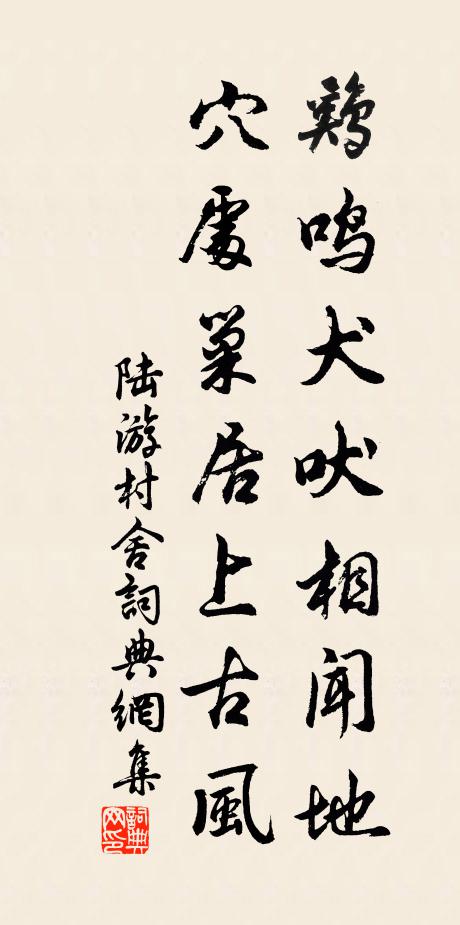 鷄鳴犬吠相聞地
穴處巢居上古風
陆游村舍詞典網集
詞典网印